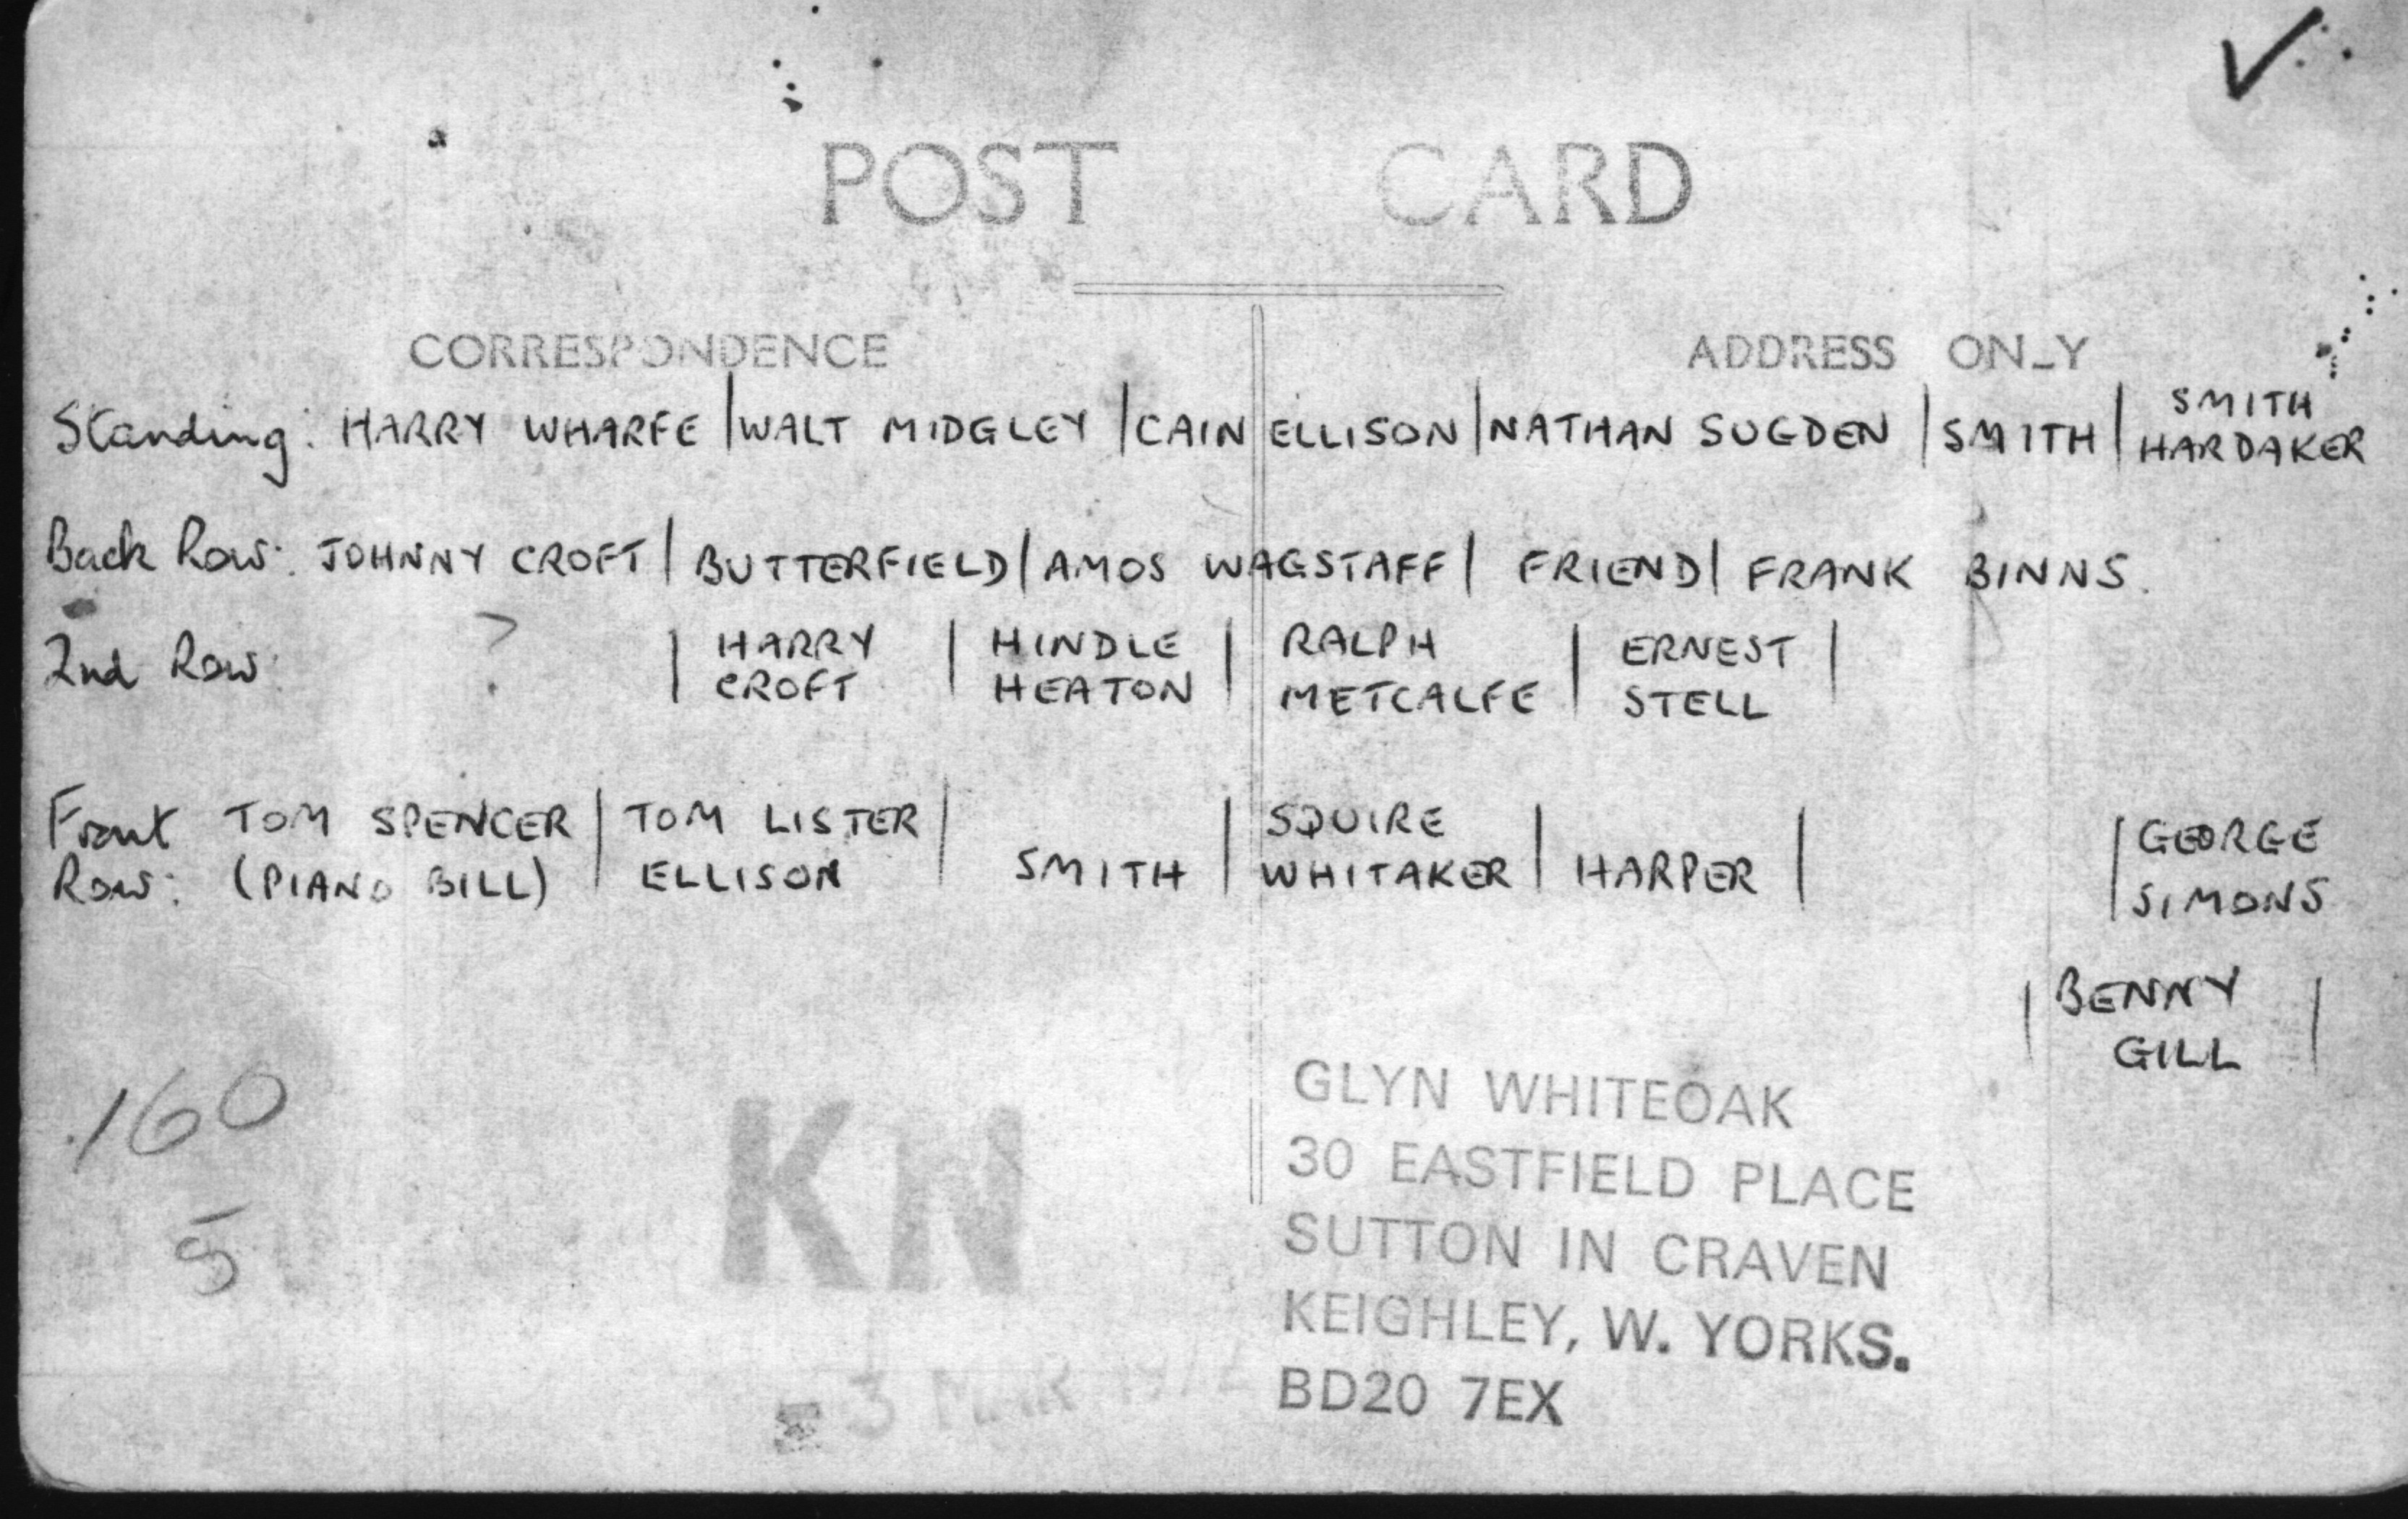 POST CARD
CORRESPONDENCE ADDRESS ONLY
Standing: HARRY WHARFE | WALT MIDGLEY | CAIN ELLISON | NATHAN SUGDEN | SMITH | SMITH HARDAKER
Back Row: JOHNNY CROFT | BUTTERFIELD | AMOS WAGSTAFF | FRIEND | FRANK BINNS.
2nd Row: ? | HARRY CROFT | HINDLE HEATON | RALPH METCALFE | ERNEST STELL |
Front Row: TOM SPENCER (PIANO BILL) | TOM LISTER ELLISON | SMITH | SQUIRE WHITAKER | HARPER | | GEORGE SIMONS
| BENNY GILL |
160
5
KN
3 MAR
GLYN WHITEOAK
30 EASTFIELD PLACE
SUTTON IN CRAVEN
KEIGHLEY, W. YORKS.
BD20 7EX